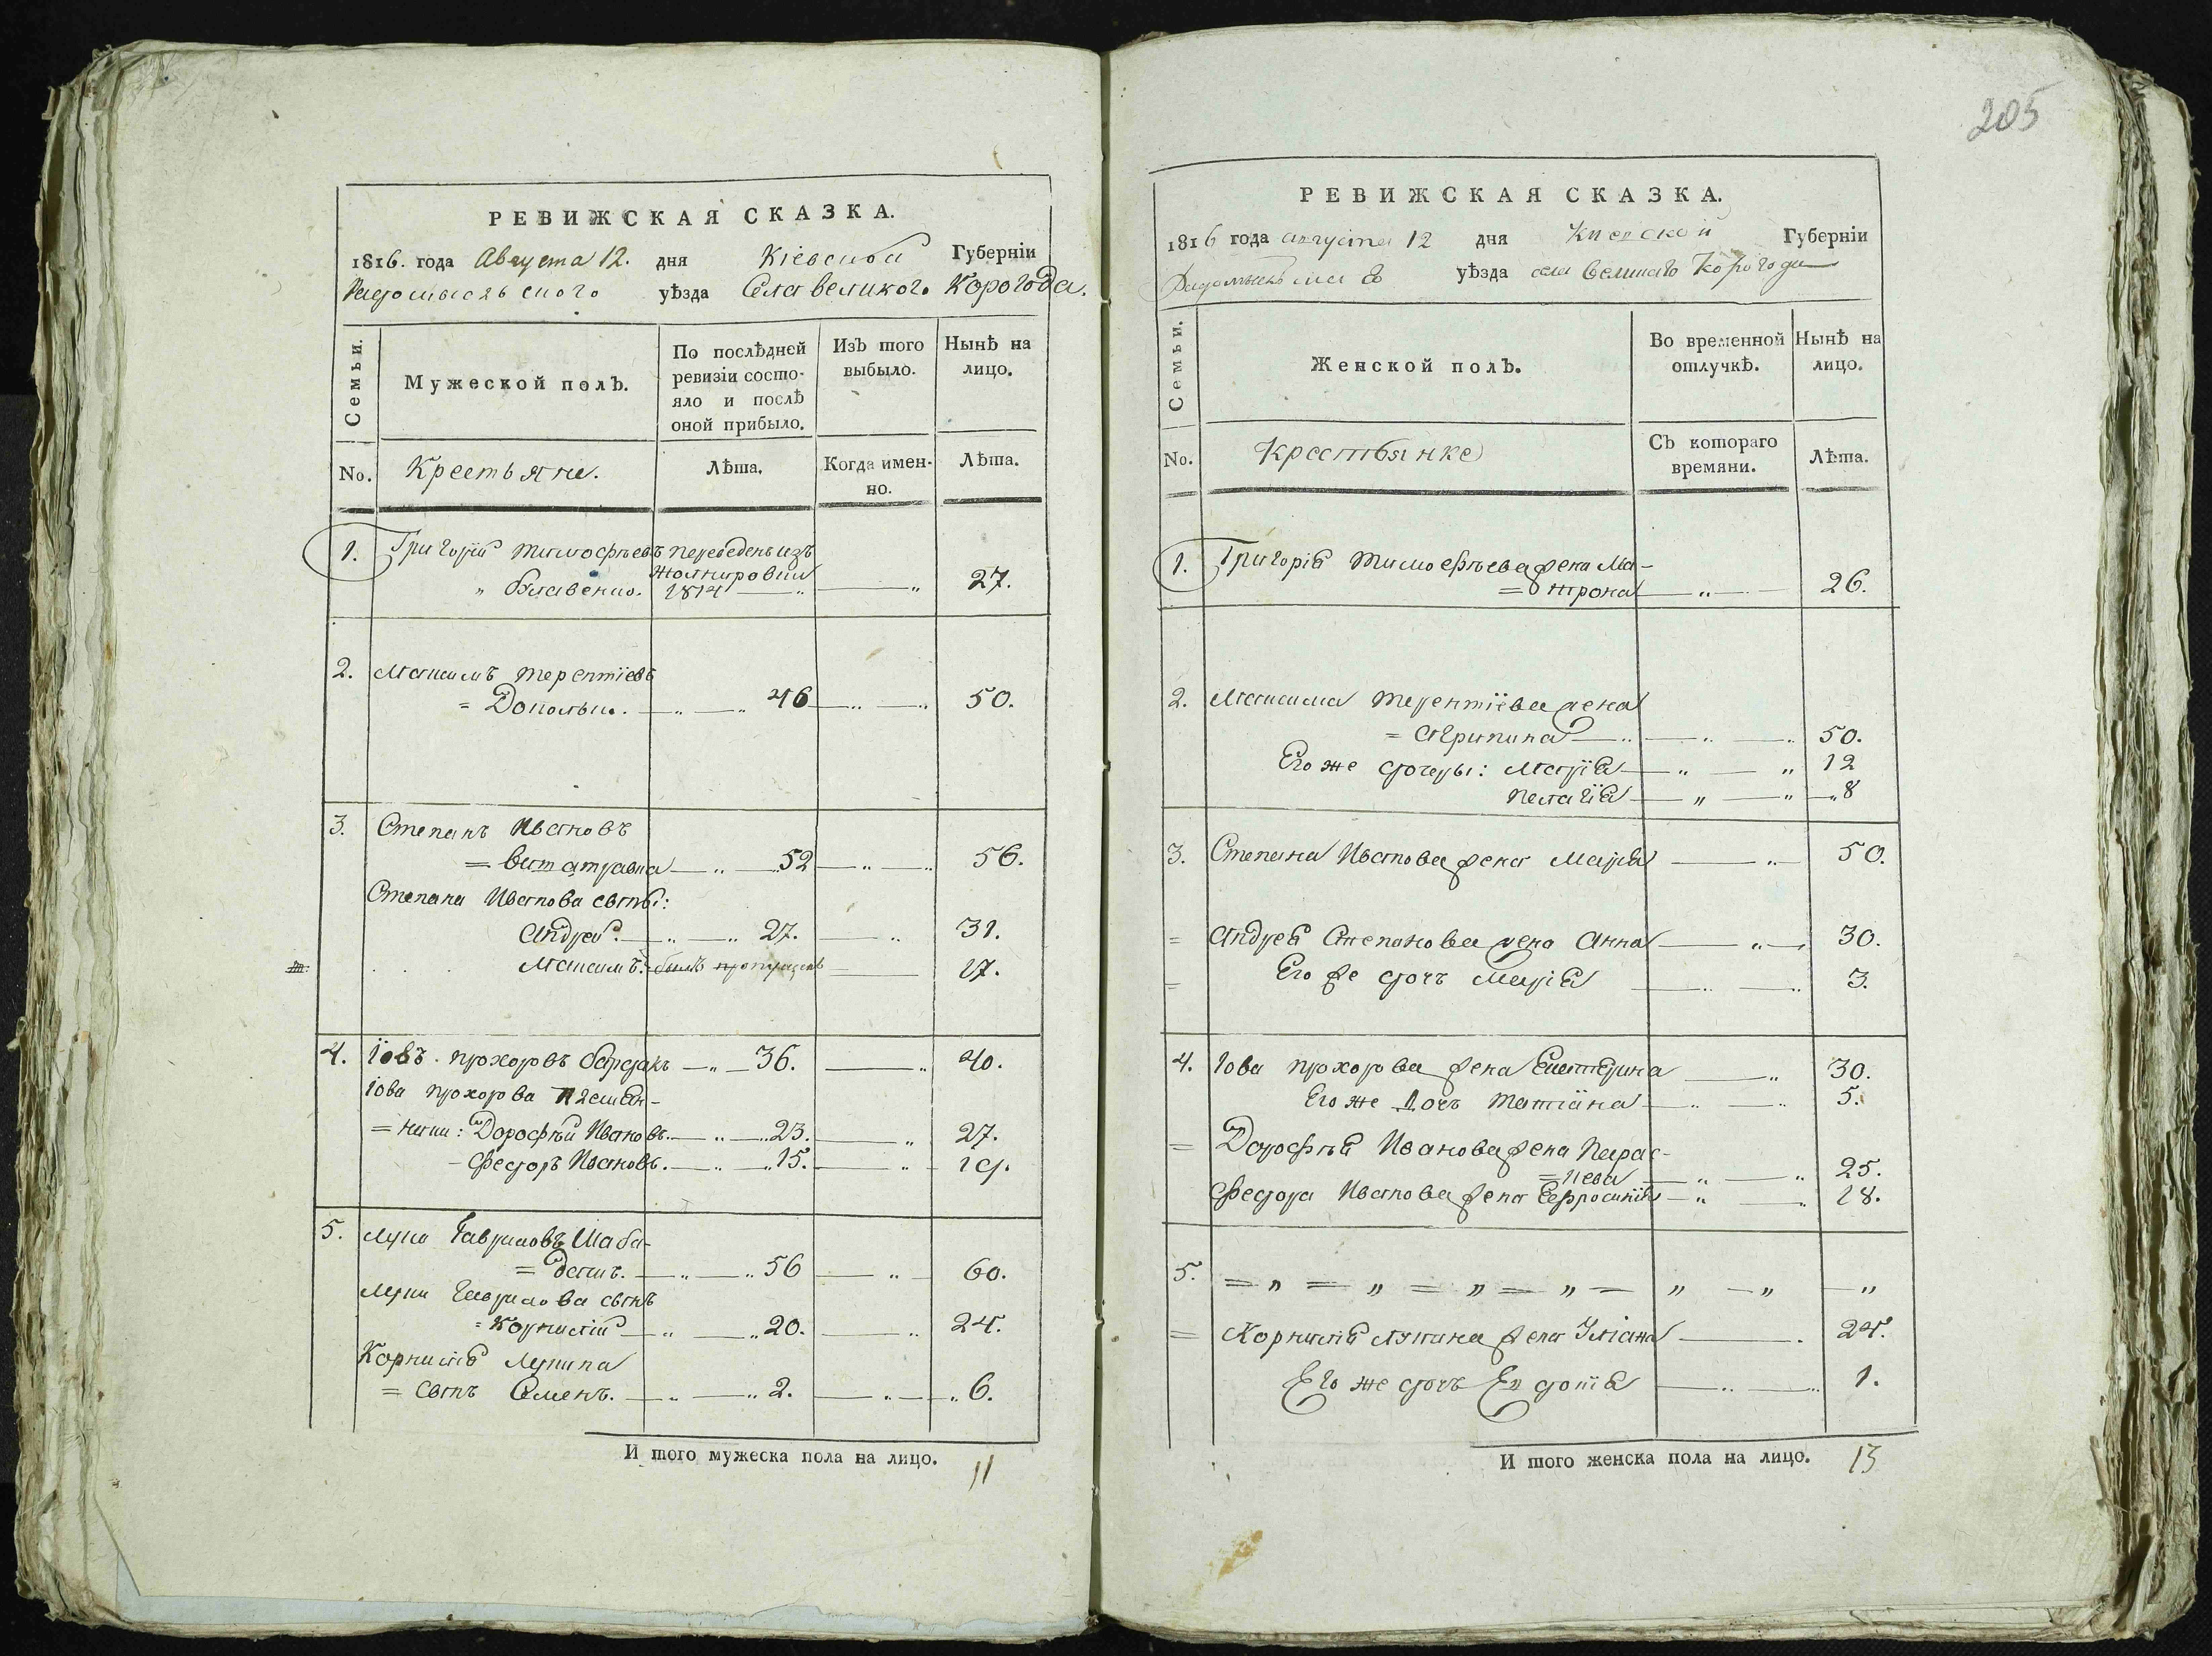 РЕВИЖСКАЯ СКАЗКА.
1816. года Августа 12. дня Кіевской Губерніи
Радомысльского уѣзда Села Великого Корогода.
Семьи.
Мужеской полъ.
По послѣдней ревизіи состо-
яло и послѣ
оной прибыло.
Изъ того
выбыло.
Нынѣ на
лицо.
No.
Крестьяне.
Лѣта.
Когда имен-
но.
Лѣта.
1. Григорій Тимофѣевъ переведенъ изъ
1814 — „ — „ 27.
2. Максимъ Терентіевъ
= — „ — „ 46 — „ — „ 50.
3. Степанъ Ивановъ
= — „ — „ 52 — „ — „ 56.
Степана Иванова сыны:
Андрей. — „ — „ 27. — „ 31.
Максимъ. былъ пропущенъ — 17.
4. Іовъ Прохоровъ — „ — 36. — „ 40.
Іова Прохорова племян-
= ники: Дорофѣй Ивановъ. — „ — „ 23. — „ 27.
– Федоръ Ивановъ. — „ — „ 15. — „ – 19.
5. Лука Гавриловъ Шаба-
= — „ — „ 56 — „ – 60.
Луки Гаврилова сынъ
= Корнилій — „ — „ 20. — „ 24.
Корнилія Лукина
= сынъ Семенъ. — „ — „ 2. — „ — „ 6.
И того мужеска пола на лицо. 11
205
РЕВИЖСКАЯ СКАЗКА.
1816 года августа 12 дня Киевской Губерніи
уѣзда села Великаго Корогода
Семьи.
Женской полъ.
Во временной
отлучкѣ.
Нынѣ на
лицо.
No.
Крестьянке
Съ котораго
времяни.
Лѣта.
1. Григорія Тимофѣева жена Ма-
= трона — „ — 26.
2. Максима Терентіева жена
= Агрипина — „ — „ — „ 50.
Его же дочеры: Марія — „ — „ 12
Пелагія — „ — „ — „ 8
3. Степана Иванова жена Марія — „ — 50.
= Андрея Степанова жена Анна — „ — „ 30.
– Его же дочъ Марія — „ — „ 3.
4. Іова Прохорова жена Екатерина — „ 30.
Его же дочъ Татіана — „ — „ 5.
= Дорофѣя Иванова жена Парас-
= кева — „ — „ 25.
Федора Иванова жена Ефросинія — „ — „ 18.
5. = „ = „ = „ = „ — „ — „ — „
= Корнилія Лукина жена Уліана — . 24.
Его же дочъ Евдотія — „ — „ 1.
И того женска пола на лицо. 13